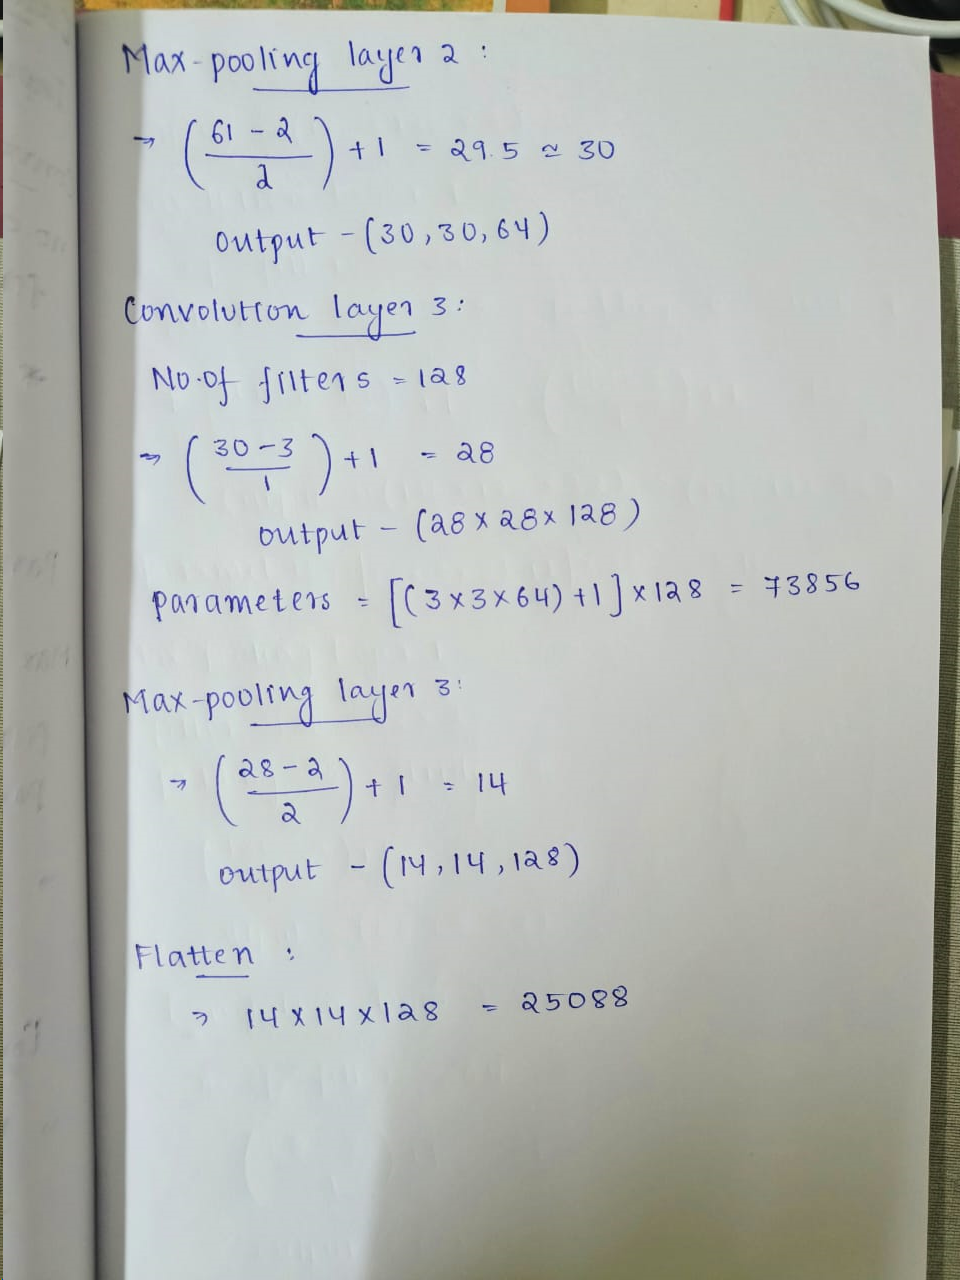 Max-pooling layer 2 :
→ ((61 - 2)/2) + 1 = 29.5 ≃ 30
output - (30, 30, 64)
Convolution layer 3 :
No. of filters = 128
→ ((30 - 3)/1) + 1 = 28
output - (28 × 28 × 128)
parameters = [(3×3×64) +1] × 128 = 73856
Max-pooling layer 3 :
→ ((28 - 2)/2) + 1 = 14
output - (14, 14, 128)
Flatten :
→ 14 × 14 × 128 = 25088